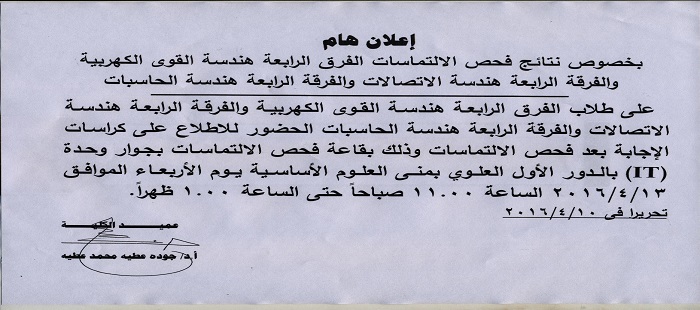 إعلان هام
بخصوص نتائج فحص الالتماسات الفرق الرابعة هندسة القوى الكهربية
والفرقة الرابعة هندسة الاتصالات والفرقة الرابعة هندسة الحاسبات
على طلاب الفرق الرابعة هندسة القوى الكهربية والفرقة الرابعة هندسة
الاتصالات والفرقة الرابعة هندسة الحاسبات الحضور للاطلاع على كراسات
الإجابة بعد فحص الالتماسات وذلك بقاعة فحص الالتماسات بجوار وحدة
(IT) بالدور الأول العلوي بمنى العلوم الأساسية يوم الأربعاء الموافق
٢٠١٦/٤/١٣ الساعة ١١.٠٠ صباحاً حتى الساعة ١.٠٠ ظهراً.
تحريرا فى ٢٠١٦/٤/١٠
عميد الكلية
أ.د/ جوده عطيه محمد عطيه